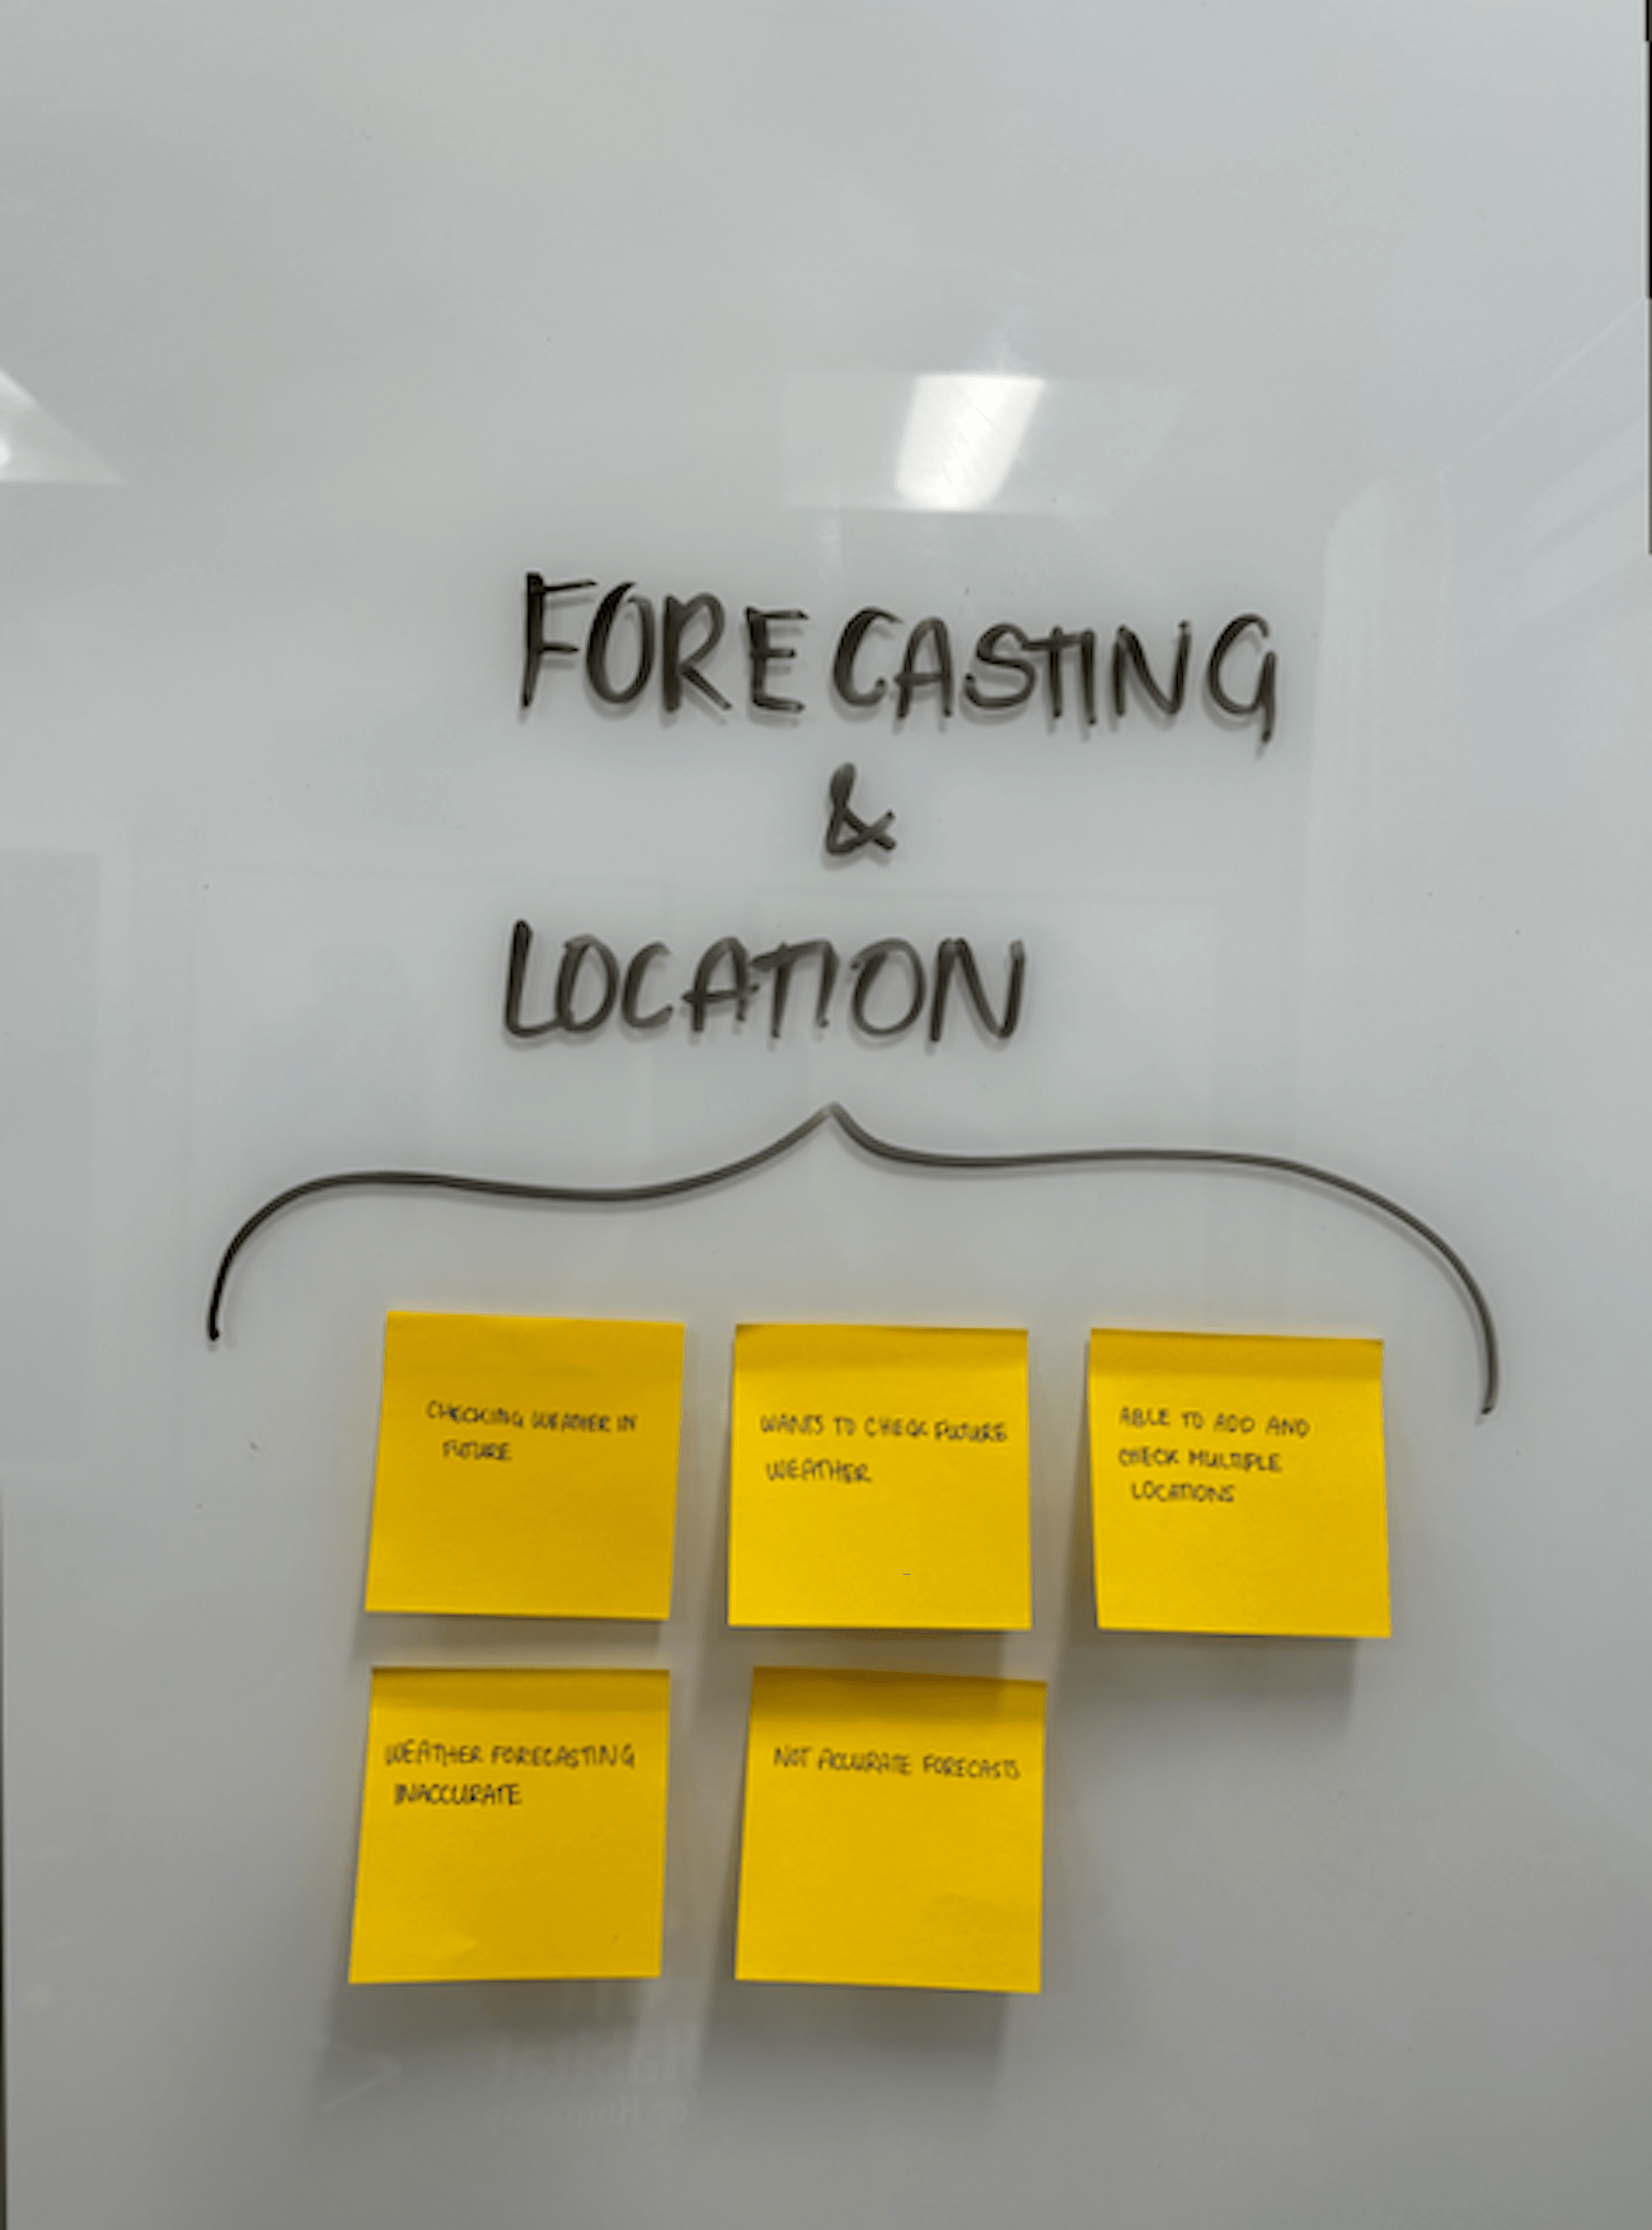 FORECASTING
&
LOCATION
CHECKING WEATHER IN
FUTURE
WANTS TO CHECK FUTURE
WEATHER
ABLE TO ADD AND
CHECK MULTIPLE
LOCATIONS
WEATHER FORECASTING
INACCURATE
NOT ACCURATE FORECASTS